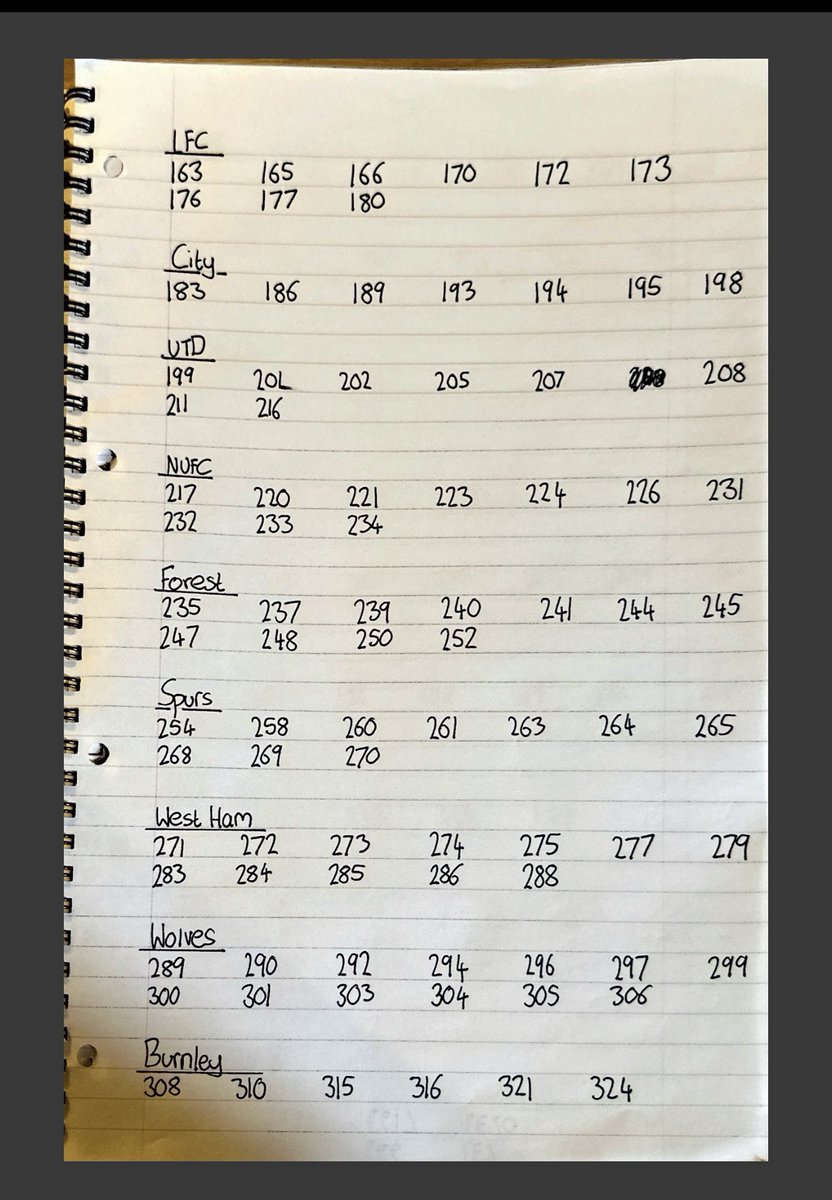 LFC
163 165 166 170 172 173
176 177 180
City
183 186 189 193 194 195 198
UTD
199 201 202 205 207 208
211 216
NUFC
217 220 221 223 224 226 231
232 233 234
Forest
235 237 239 240 241 244 245
247 248 250 252
Spurs
254 258 260 261 263 264 265
268 269 270
West Ham
271 272 273 274 275 277 279
283 284 285 286 288
Wolves
289 290 292 294 296 297 299
300 301 303 304 305 306
Burnley
308 310 315 316 321 324